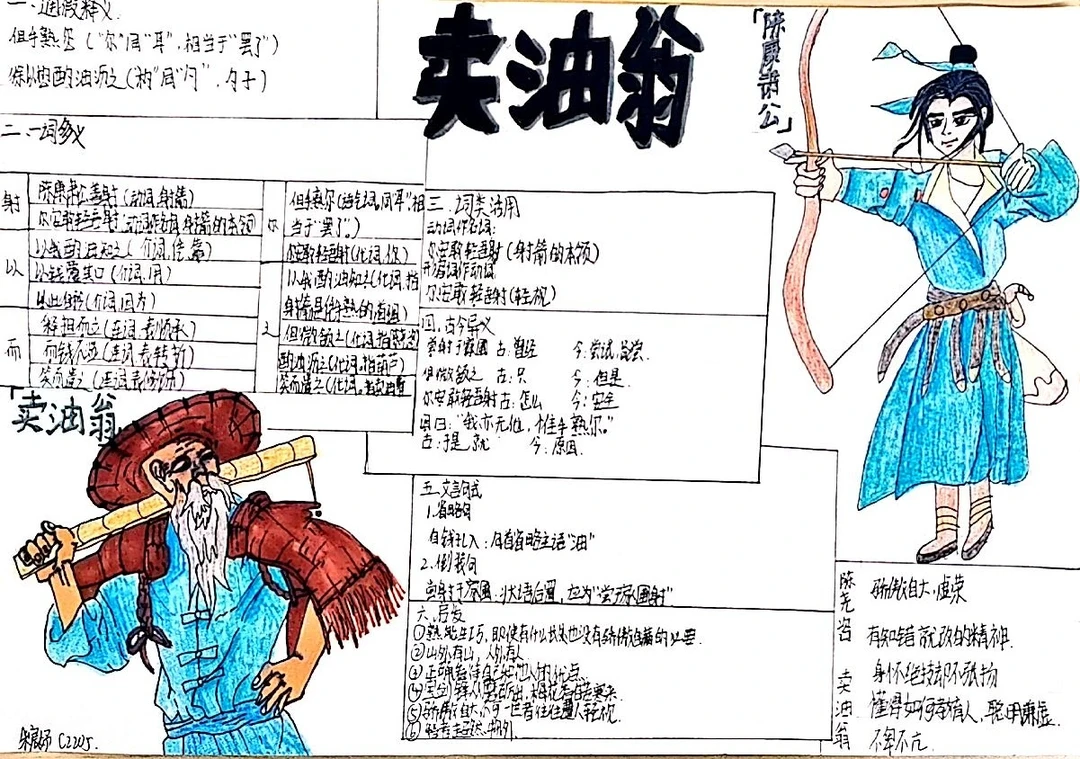 卖油翁
「陈康肃公」
一、通假释义
但手熟尔（“尔”同“耳”，相当于“罢了”）
徐以杓酌油沥之（“杓”同“勺”，勺子）
二、一词多义
射
陈康肃公善射（动词，射箭）
尔安敢轻吾射（动词作名词，射箭的本领）
以
以我酌油知之（介词，凭，靠）
以钱覆其口（介词，用）
以此自矜（介词，因为）
而
释担而立（连词，表顺承）
而钱不湿（连词，表转折）
笑而遣之（连词，表修饰）
尔
但手熟尔（语气词，同“耳”，相
当于“罢了”。）
尔安敢轻吾射（代词，你）
之
以我酌油知之（代词，指
射箭是凭手熟的道理）
但微颔之（代词，指
酌油沥之（代词，指葫芦）
笑而遣之（代词，指卖油翁
三、词类活用
动词作名词：
尔安敢轻吾射（射箭的本领）
形容词作动词：
尔安敢轻吾射（轻视）
四、古今异义
尝射于家圃 古：曾经 今：尝试，品尝.
但微颔之 古：只 今：但是.
尔安敢轻吾射 古：怎么 今：安全
翁曰：“我亦无他，惟手熟尔。”
古：于是，就 今：原因.
五、文言句式
1.省略句
自钱孔入：同首省略主语“油”
2.倒装句
尝射于家圃：状语后置，应为“尝于家圃射”
六、启发
①熟能生巧，即使有什么长处也没有骄傲自满的必要.
②山外有山，人外有人
③正确看待自己和他人的优点.
④宝剑锋从磨砺出，梅花香自苦寒来.
⑤骄傲自大，不可一世者往往置人轻视.
⑥
「卖油翁
陈尧咨
骄傲自大，虚荣
有知错就改的精神.
卖油翁
身怀绝技却不张扬
懂得如何尊敬人，聪明谦虚.
不卑不亢.
C2205.